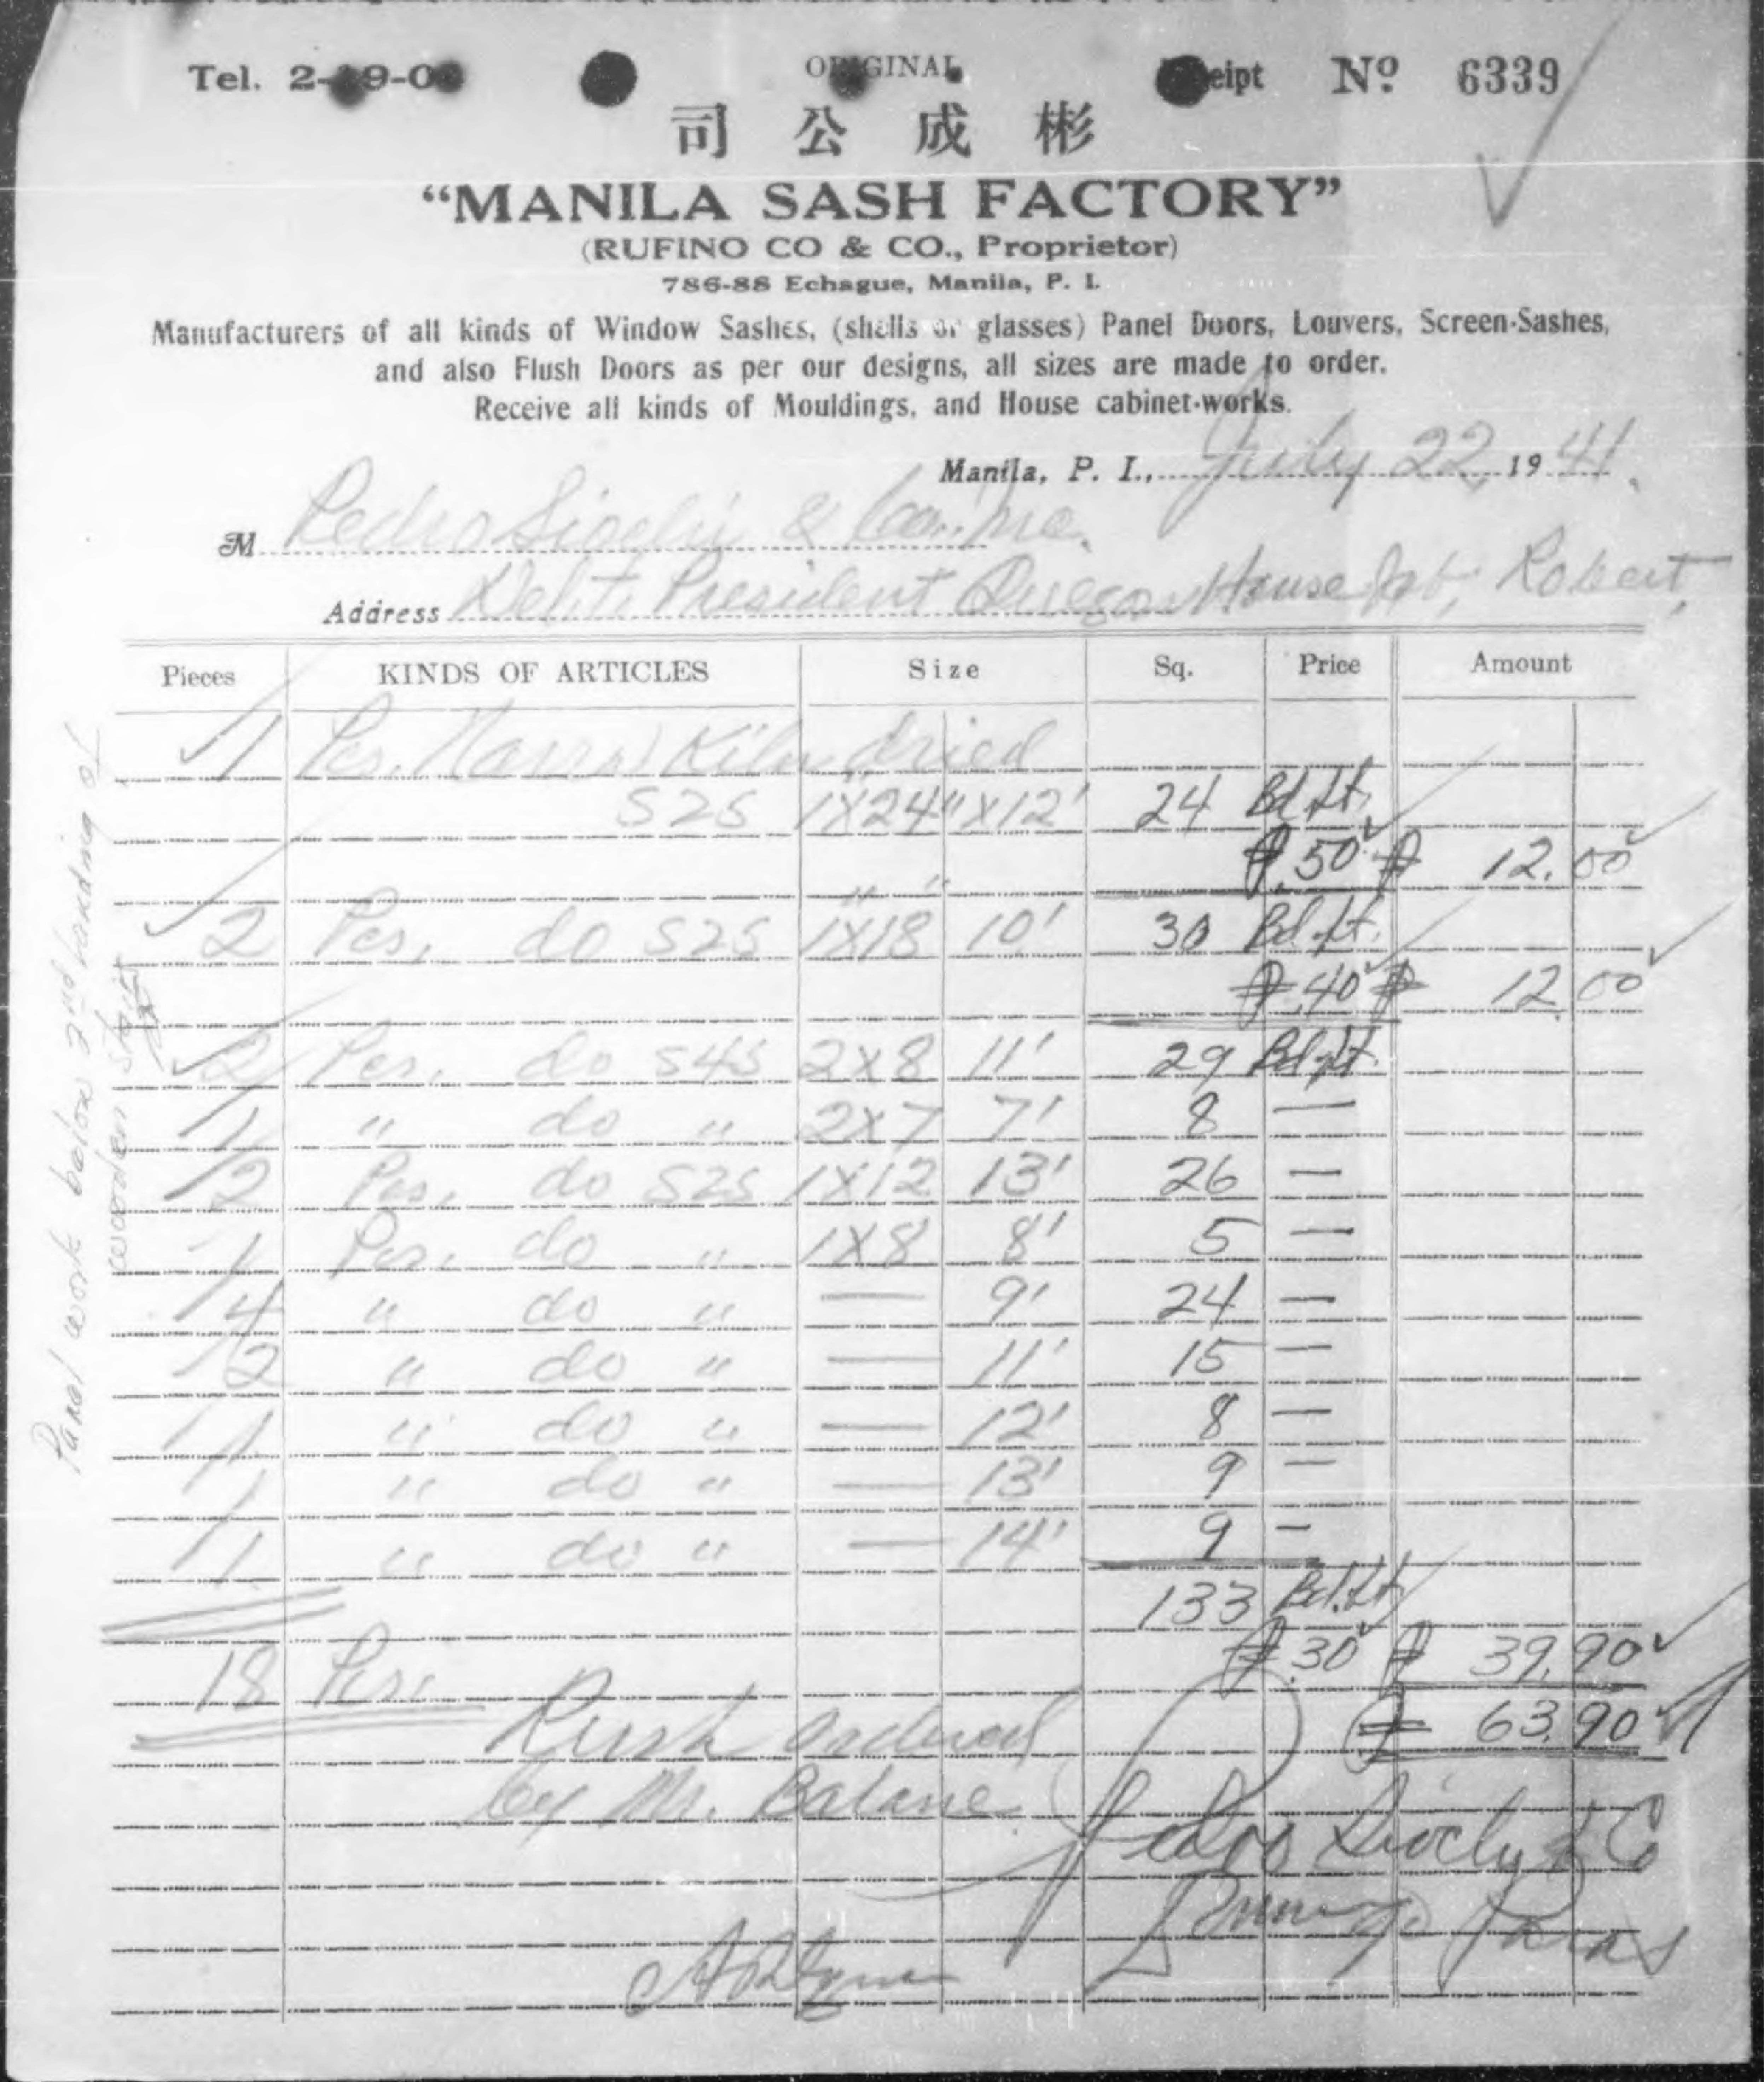 Tel. 2- 9-0
ORIGINAL
eipt Nº 6339
司公成彬
“MANILA SASH FACTORY”
(RUFINO CO & CO., Proprietor)
786-88 Echague, Manila, P. I.
Manufacturers of all kinds of Window Sashes, (shells or glasses) Panel Doors, Louvers, Screen-Sashes,
and also Flush Doors as per our designs, all sizes are made to order.
Receive all kinds of Mouldings, and House cabinet-works.
Manila, P. I., July 22, 19 41.
M Pedro Siochi & Co. Inc.
Address President House Robert,
Pieces KINDS OF ARTICLES Size Sq. Price Amount
1 Pcs. Narra Kiln dried
S2S 1"X24"X12' 24 Bd.ft.
₱.50 ₱ 12.00
2 Pcs. do S2S 1"X18" 10' 30 Bd.ft.
₱.40 ₱ 12.00
2 Pcs. do S4S 2X8 11' 29 Bd.ft.
1 " do " 2X7 7' 8 —
2 Pcs. do S2S 1X12 13' 26 —
1 Pcs. do " 1X8 8' 5 —
4 " do " — 9' 24 —
2 " do " — 11' 15 —
1 " do " — 12' 8 —
1 " do " — 13' 9 —
1 " do " — 14' 9 —
133 Bd.ft.
₱.30 ₱ 39.90
18 Pcs.
₱ 63.90
Rush ordered
by Mr. Balane
Pedro Siochi & Co
Paras
Panel work below 2nd landing of
wooden stair